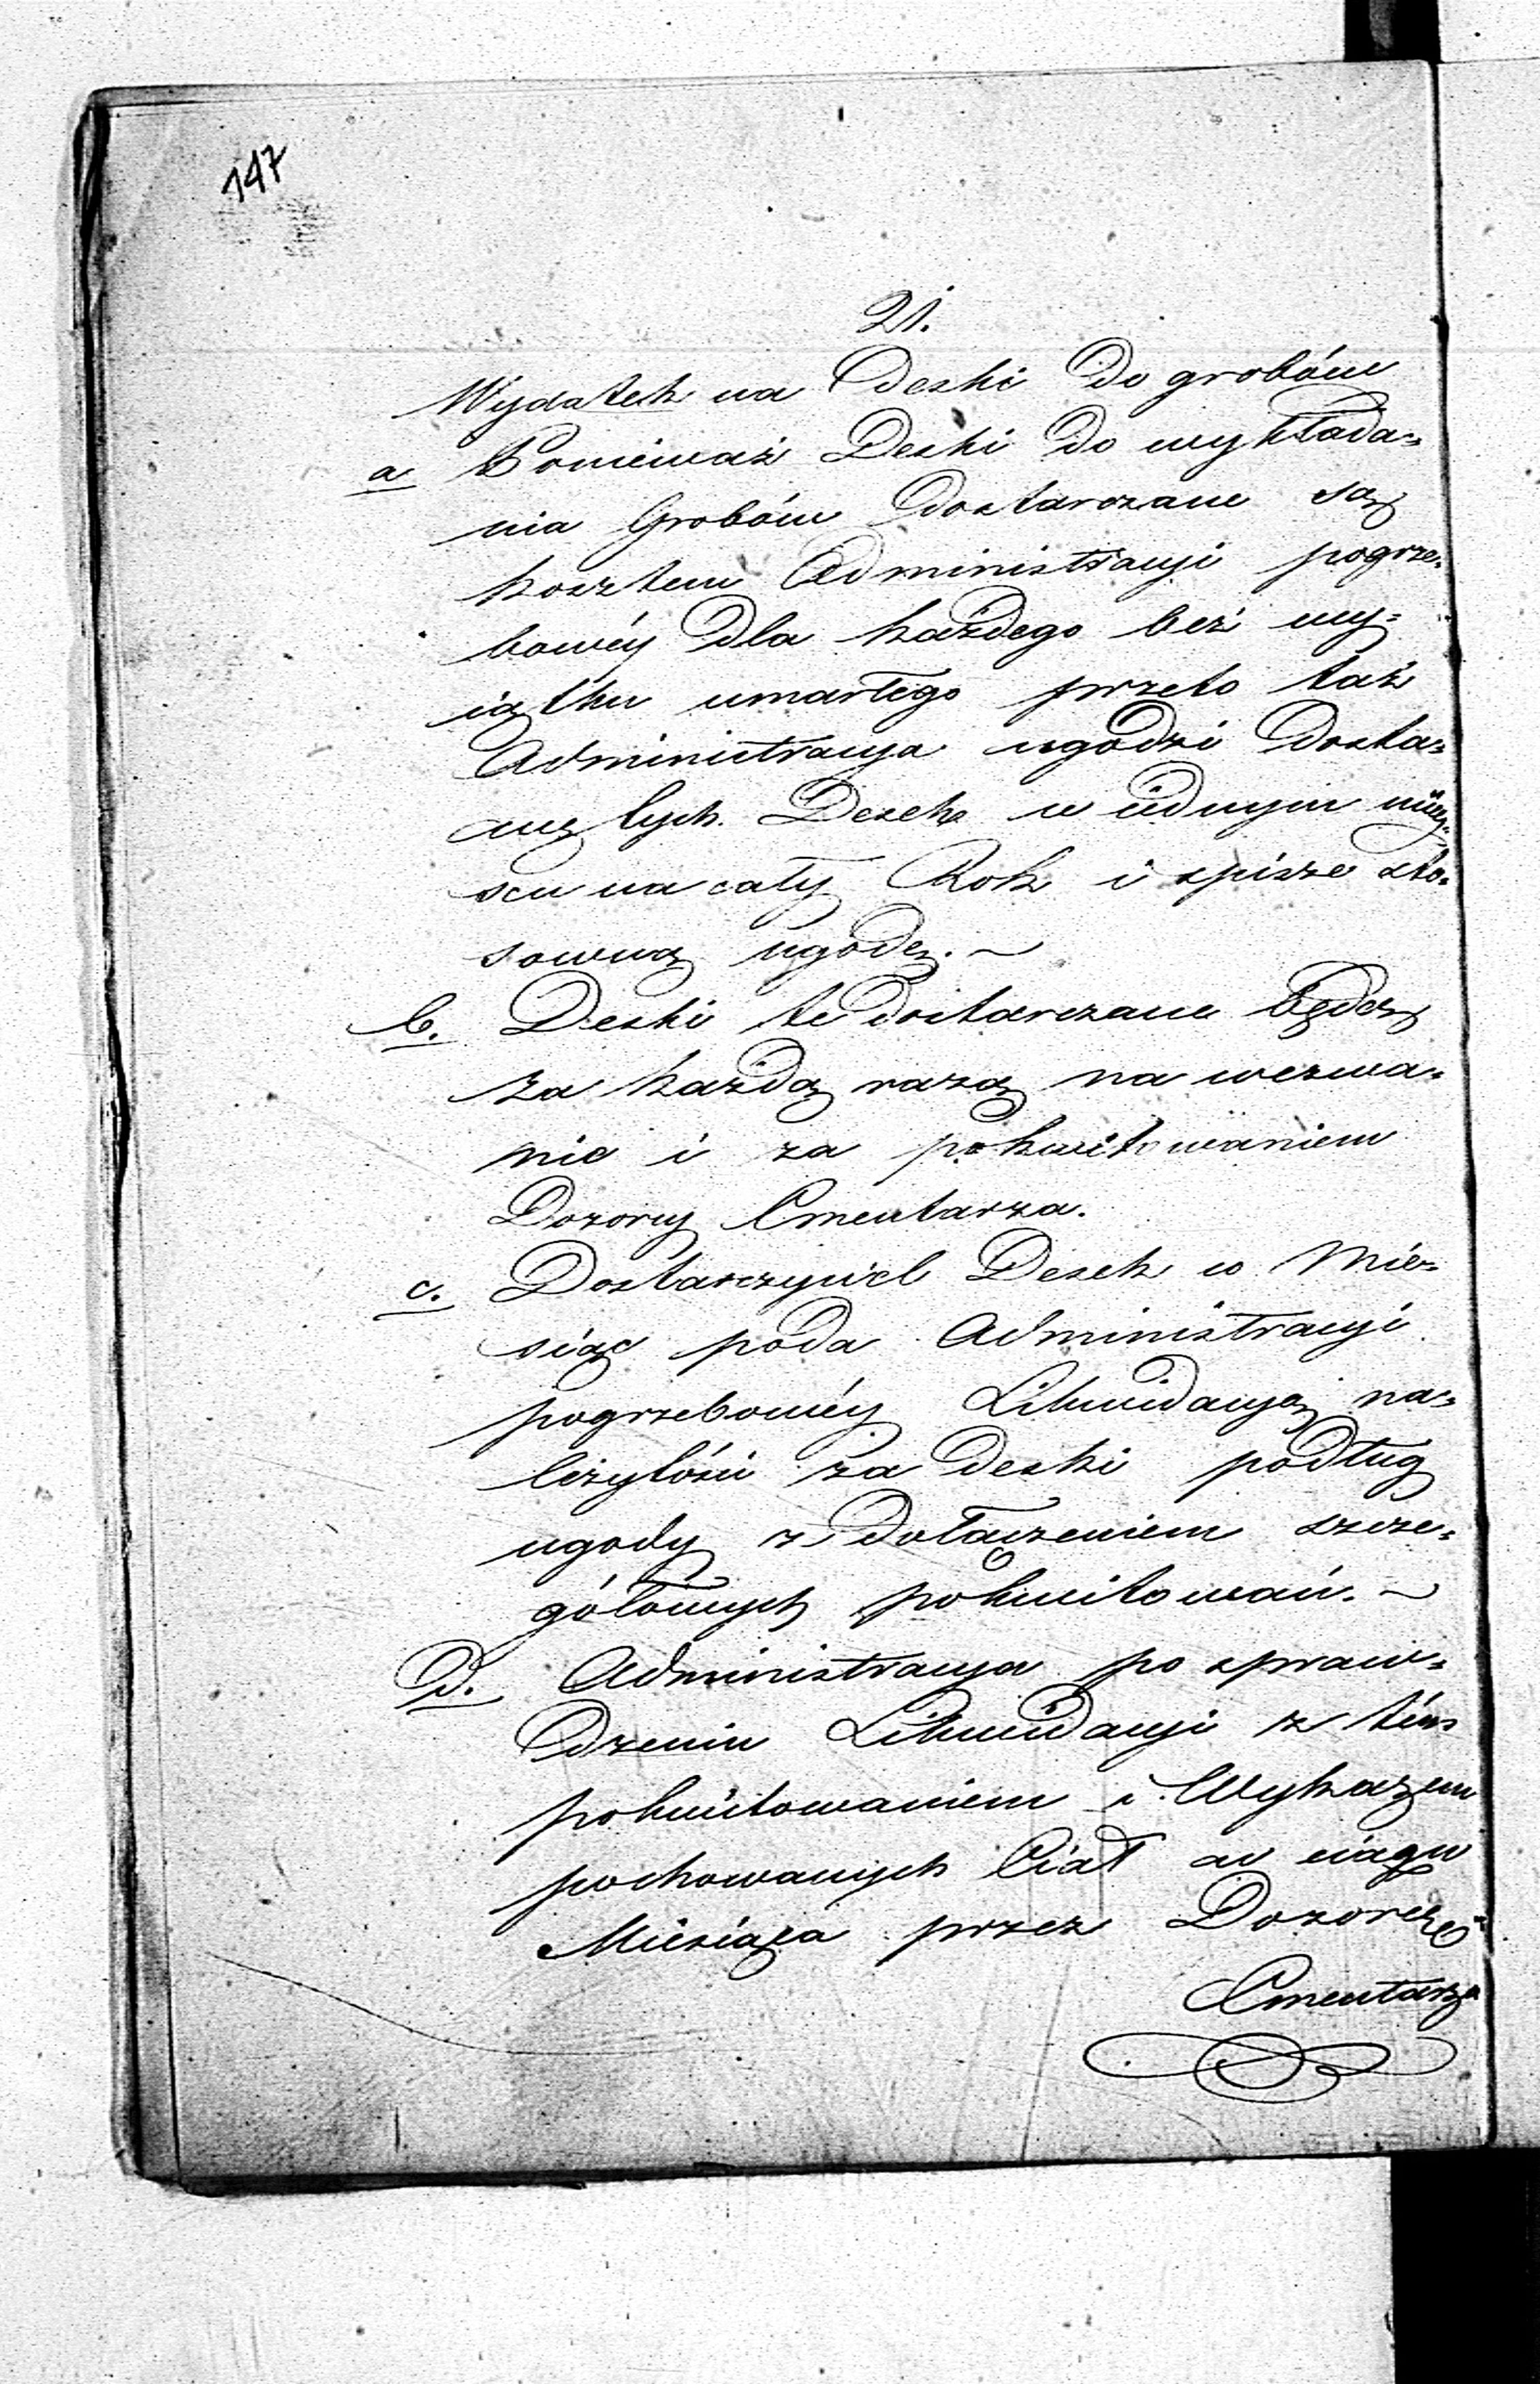 147
21.
Wydatek na Deski Do grobów
a Ponieważ Deski Do wykłada=
nia Grobów Dostarczane są
kosztem Administracyi pogrze=
bowéy Dla każdego bez wy=
iątku umarłego przeto taż
Administracya ugodzi Dosta=
wę tych Desek w iédnym miey=
scu na cały Rok i spisze sto=
sowną ugodę. ~
b. Deski te Dostarczane będą
za każdą razą na wezwa=
nie i za pokwitowaniem
Dozorcy Cmentarza.
c. Dostarczyciel Desek co Mie=
siąc poda Administracyi
pogrzebowéy Likwidacyą na=
leżytości za Deski podług
ugody z Dołączeniem szcze=
gółowych pokwitowań. ~
D. Administracya po spraw=
Dzeniu Likwidacyi z tém
pokwitowaniem i Wykazem
pochowanych Ciał w ciągu
Miesiąca przez Dozorcę
Cmentarza